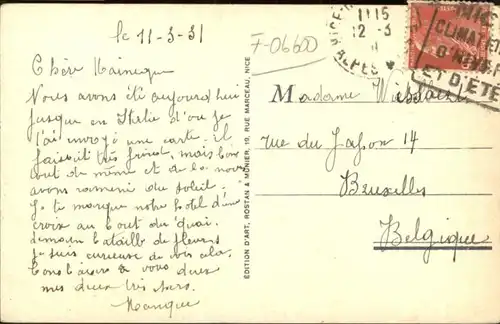 le 11-3-31
Chère
Nous avons été aujourd'hui
jusque en Italie d'ou je
t'ai envoyé une carte. il
faisait très froid, mais bon
tout de même et de la nous
avons ramené du soleil.
Je te marque notre hotel d'une
croix au bout du quai.
demain bataille de fleurs
je suis curieuse de voir cela.
Bons baisers a vous deux
mes deux très chers.
EDITION D'ART, ROSTAN & MUNIER, 19, RUE MARCEAU, NICE
F-06600
1115
12-3
31
NICE
CLIMAT
D'HIVER
ET D'ÉTÉ
Madame
rue du Japon 14
Bruxelles
Belgique